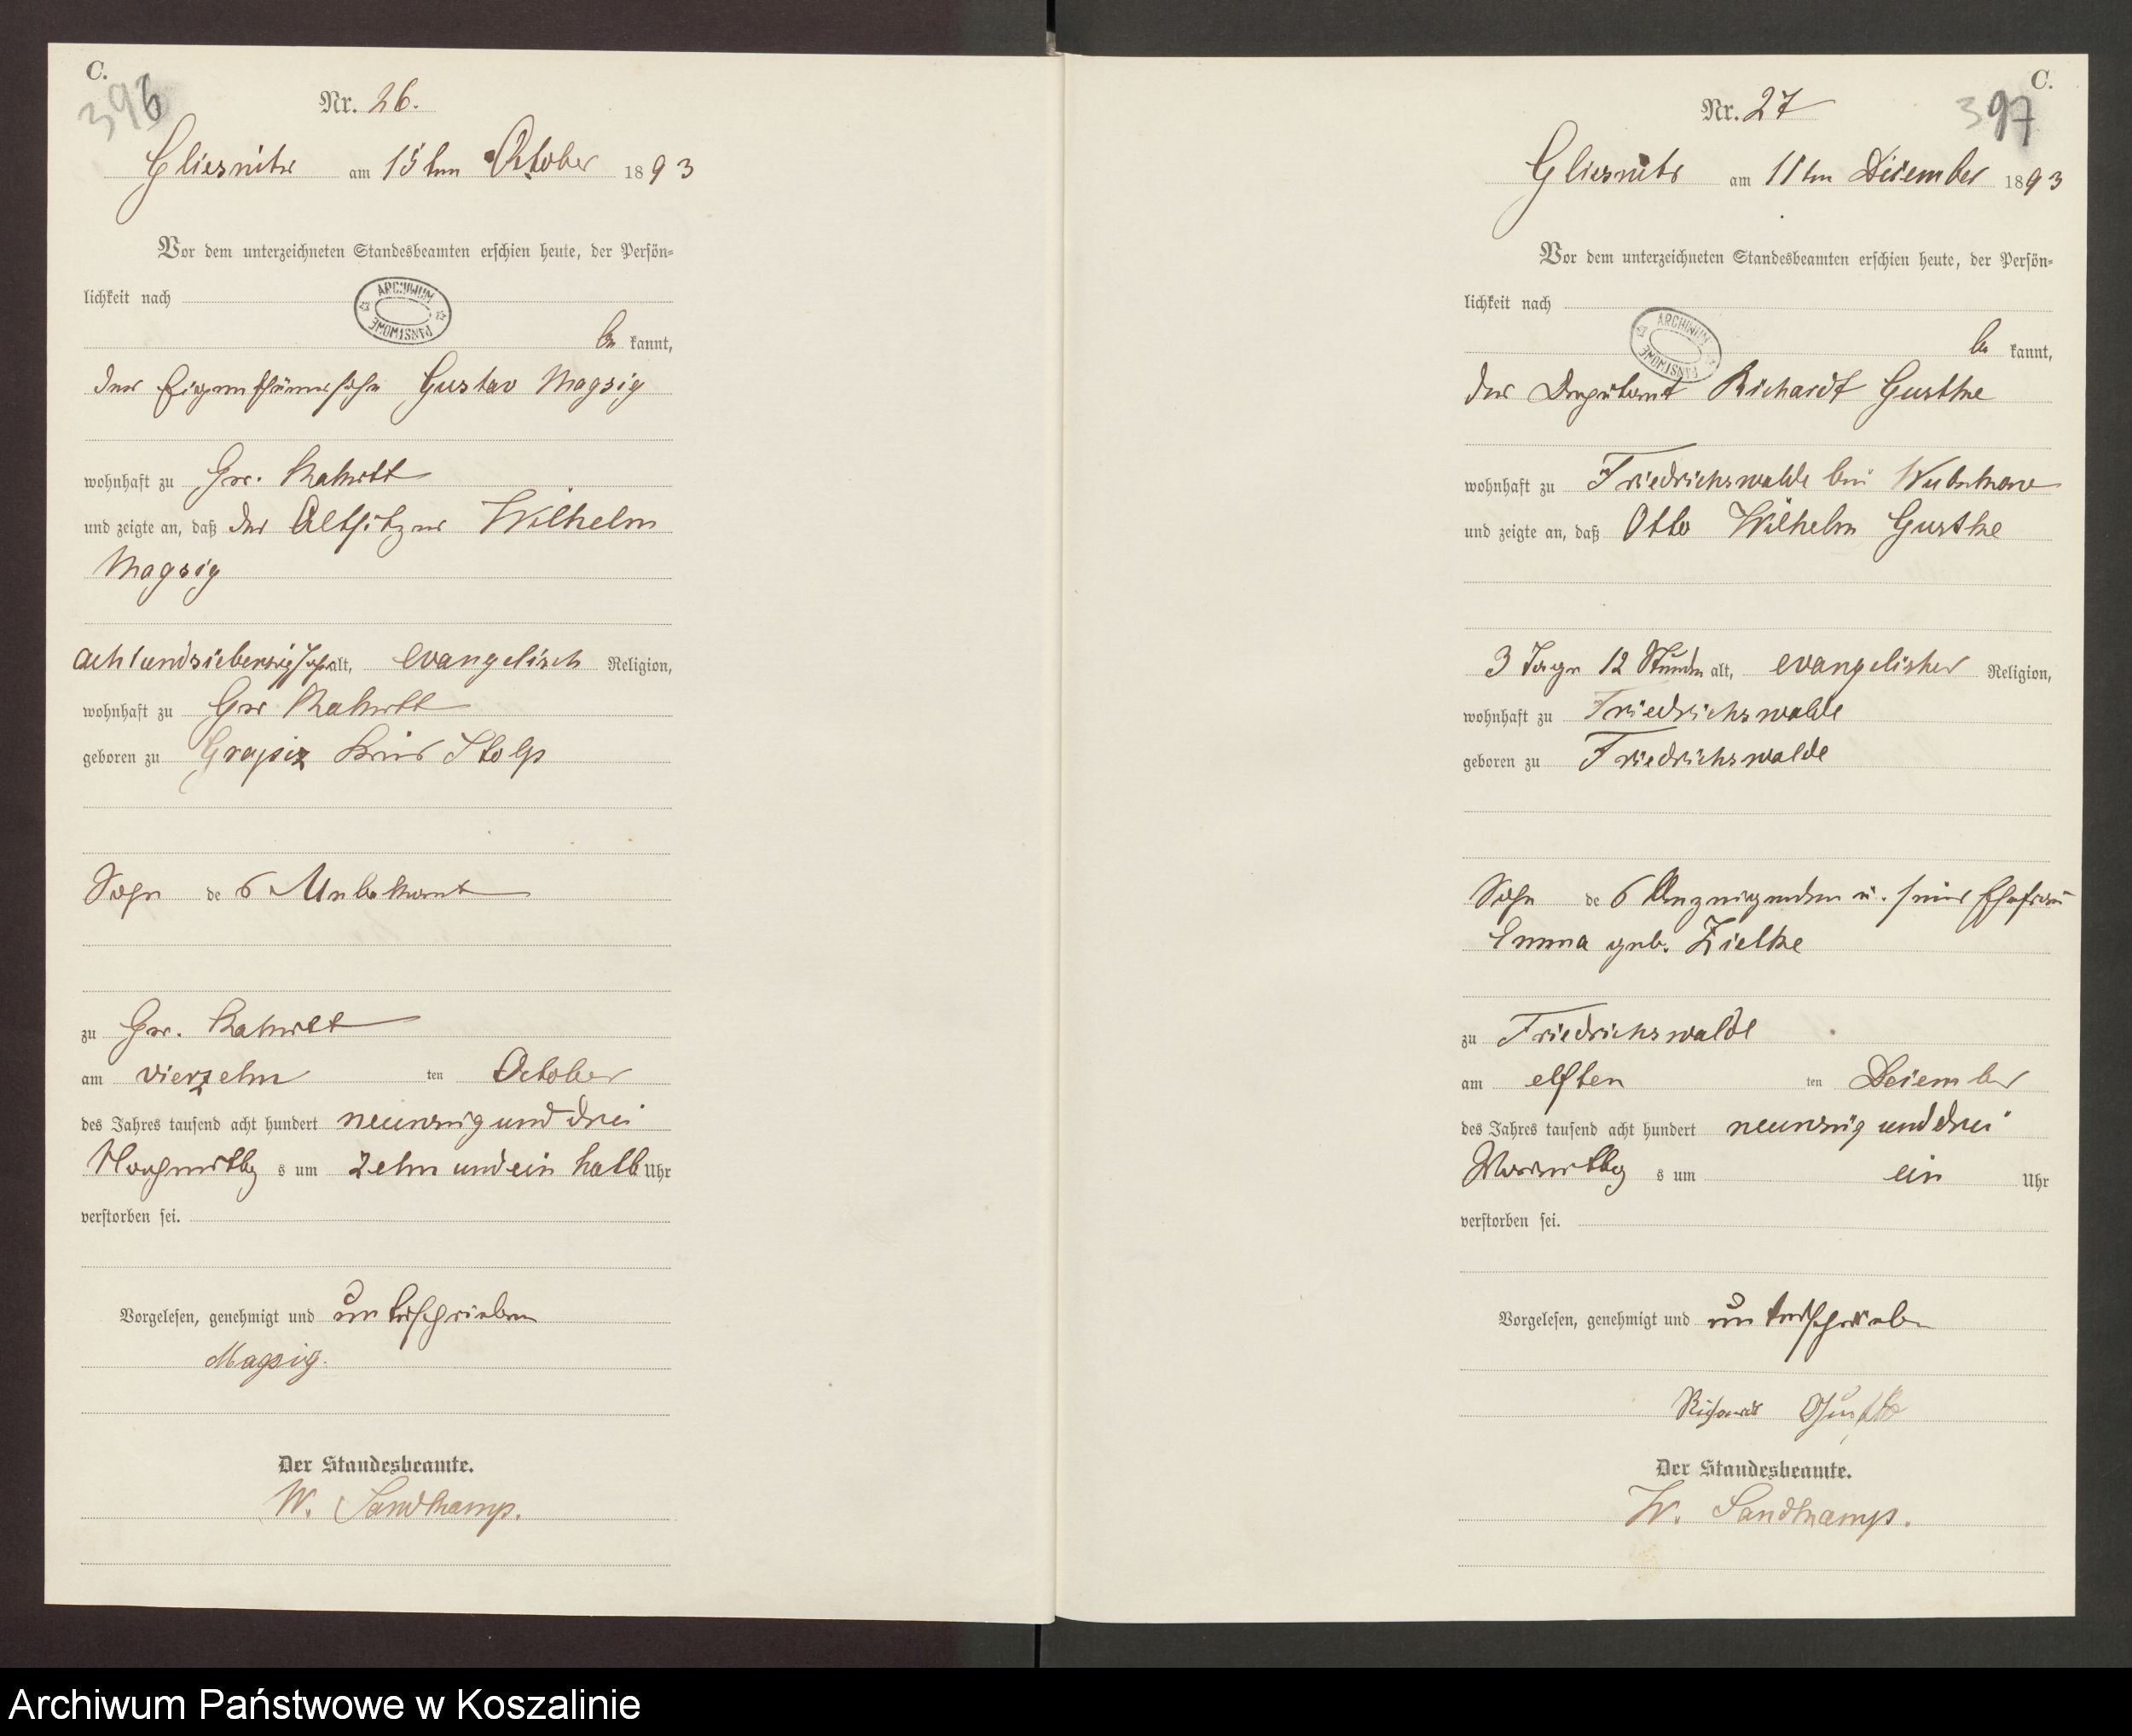 C.
396
Nr. 26.
Gliesnitz am 15ten October 1893
Vor dem unterzeichneten Standesbeamten erschien heute, der Persön-
lichkeit nach
ARCHIWUM PAŃSTWOWE
be kannt,
der Eigenthümersohn Gustav Magsig
wohnhaft zu Gr. Rakitt
und zeigte an, daß der Altsitzer Wilhelm
Magsig
achtundsiebenzig Jahr alt, evangelisch Religion,
wohnhaft zu Gr Rakitt
geboren zu Kreis Stolp
Sohn de s Unbekant
zu Gr. Rakitt
am vierzehn ten October
des Jahres tausend acht hundert neunzig und drei
Nachmittag s um zehn und ein halb Uhr
verstorben sei.
Vorgelesen, genehmigt und unterschrieben
Magsig.
Der Standesbeamte.
W. Sandkamp.
C.
397
Nr. 27
Gliesnitz am 11ten Dezember 1893
Vor dem unterzeichneten Standesbeamten erschien heute, der Persön-
lichkeit nach
ARCHIWUM PAŃSTWOWE
be kannt,
der Deputant Richardt Gustke
wohnhaft zu Friedrichswalde bei Wutzkow
und zeigte an, daß Otto Wilhelm Gustke
3 Tage 12 Stunden alt, evangelisher Religion,
wohnhaft zu Friedrichswalde
geboren zu Friedrichswalde
Sohn de s Anzeigenden u. seiner Ehefrau
Emma geb. Zielke
zu Friedrichswalde
am elften ten Dezember
des Jahres tausend acht hundert neunzig und drei
Vormittag s um ein Uhr
verstorben sei.
Vorgelesen, genehmigt und unterschrieben
Richardt Gustke
Der Standesbeamte.
W. Sandkamp.
Archiwum Państwowe w Koszalinie